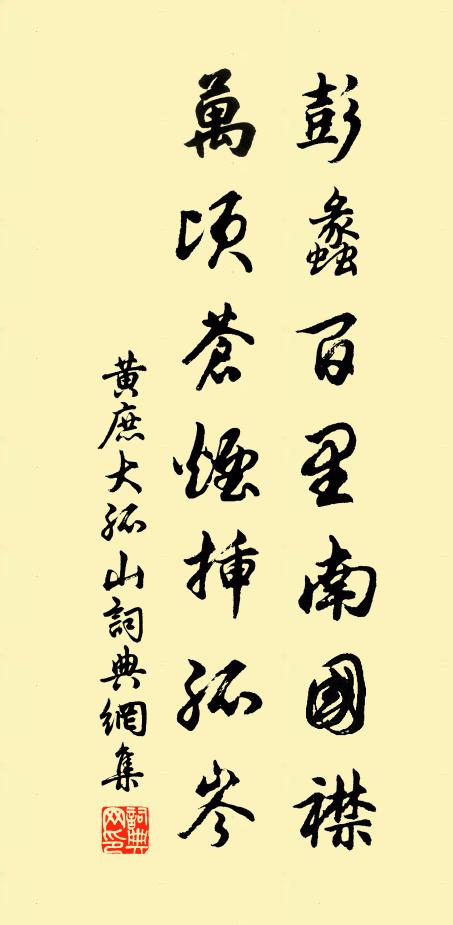 彭蠡百里南國襟
萬頃蒼煙插孤岑
黃庶大孤山詞典網集
詞典网印